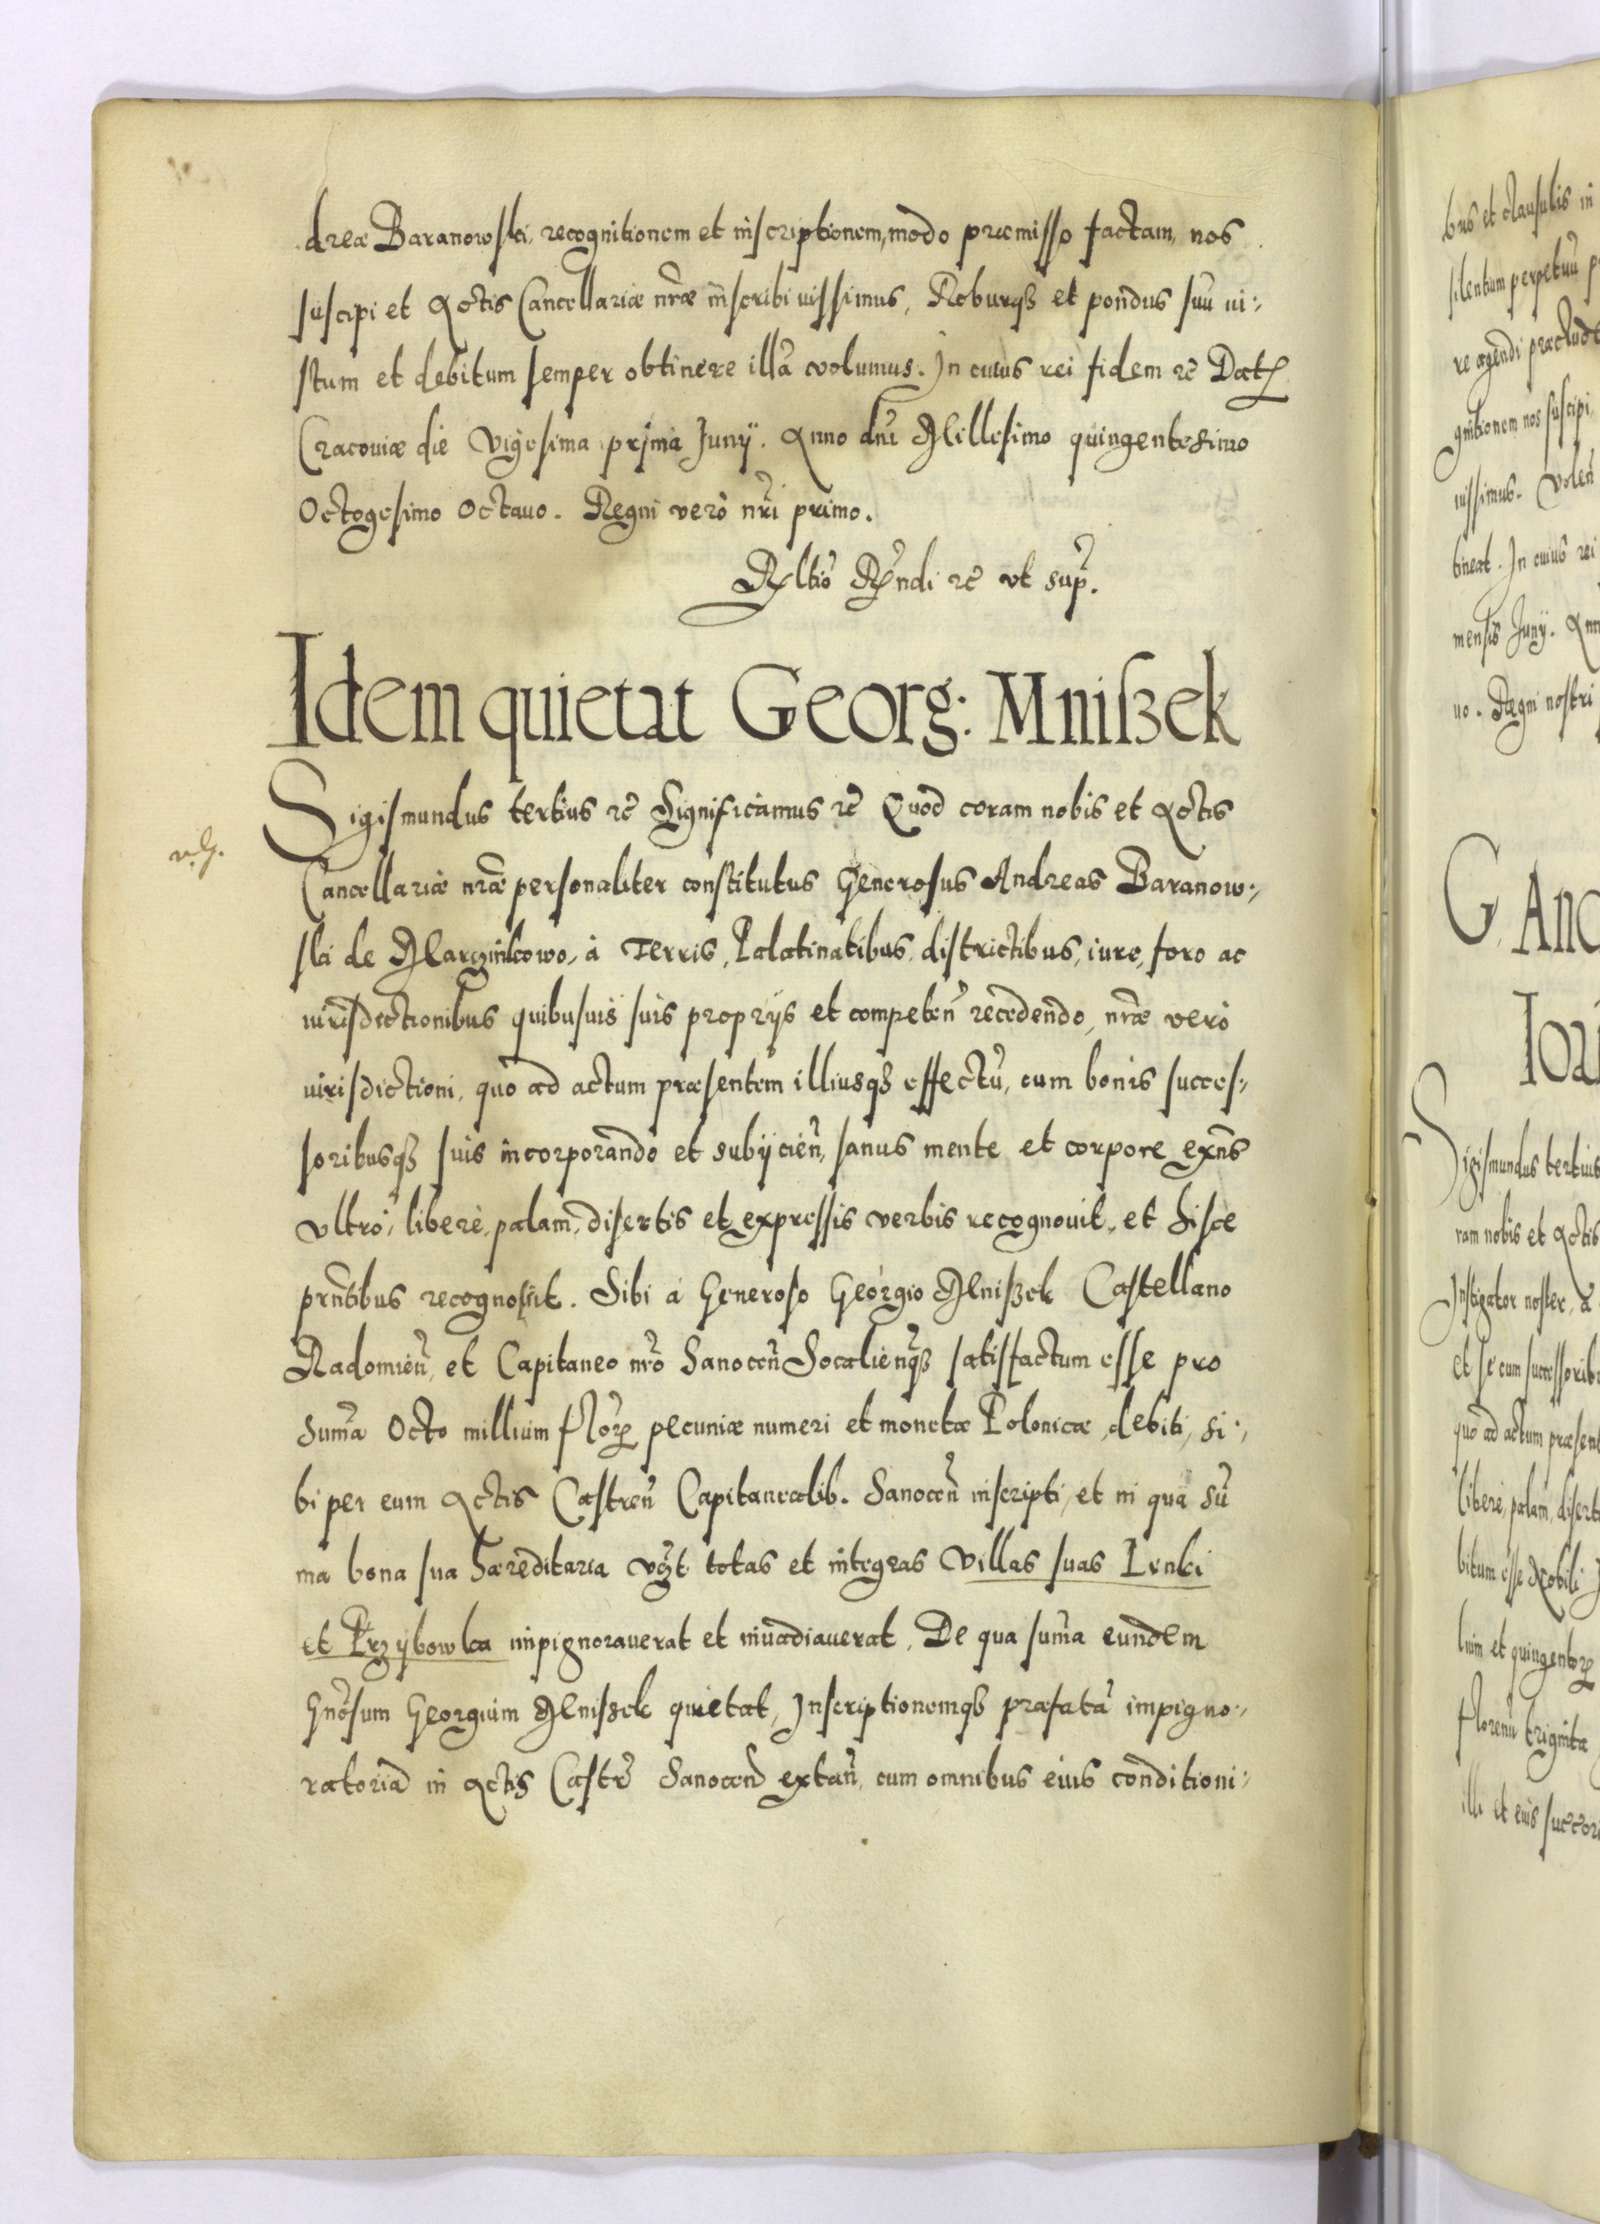 dreæ Baranowski, recognitionem et inscriptionem, modo præmisso factam, nos
suscipi et Actis Cancellariæ nr̃æ inscribi iussimus, Roburqȝ et pondus suũ iu:,
stum et debitum semper obtinere illã volumus. In cuius rei fidem ꝛc̃ Datꝭ
Cracoviæ die Vigesima prima Junÿ. Anno dnĩ Millesimo quingentesimo
Octogesimo Octauo. Regni verò nr̃i primo.
R̃ndi ꝛc̃ vt sup̃.
Idem quietat Georg: Mniszek
Sigismundus tertius ꝛc̃ Significamus ꝛc̃ Quod coram nobis et Actis
Cancellariæ nr̃æ personaliter constitutus Generosus Andreas Baranow:,
ski de Marczinkowo, à Terris, Palatinatibus, districtibus, iure, foro ac
iurisdictionibus quibusuis suis proprÿs et competeñ recedendo, nr̃æ verò
iurisdictioni, quò ad actum præsentem illiusqȝ effectũ, cum bonis succes:,
soribusqȝ suis incorporando et subÿcieñ, sanus mente et corpore exñs
vltrò, liberè, palam, disertis et expressis verbis recognouit, et hisce
prñtibus recognoscit. Sibi à Generoso Georgio Mniszek Castellano
Radomieñ, et Capitaneo nr̃o Sanoceñ Socalieñqȝ satisfactum esse pro
sum̃a Octo millium flor̃ꝝ pecuniæ numeri et monetæ Polonicæ, debiti, si:,
bi per eum Actis Castreñ Capitanealib. Sanoceñ inscripti, et in qua sũ
ma bona sua hæreditaria vꝫt totas et integras Villas suas Lenki
et Przÿbowka impignorauerat et inuadiauerat, De qua sum̃a eundem
Gnõsum Georgium Mniszek quietat, Inscriptionemqȝ præfatã impigno:,
ratoriã in Actis Castr̃ Sanoceñ extañ, cum omnibus eius conditioni:,
bus et clausulis in
silentium perpetuũ
re agendi præclude
gnitionem nos suscipi
iussimus. Voleñ
tineat. In cuius rei
mensis Junÿ. Ann
uo. Regni nostri
G. And
Ioa
Sigismundus tertius
ram nobis et Actis
Instigator noster, à
et se cum successorib
quò ad actum præsent
liberè, palam, diserti
bitum esse Nobili
lium et quingentoꝝ
florenũ triginta
illi et eius succor